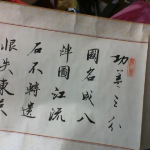 功蓋三分
國名成八
陣圖江流
石不轉遺
恨失